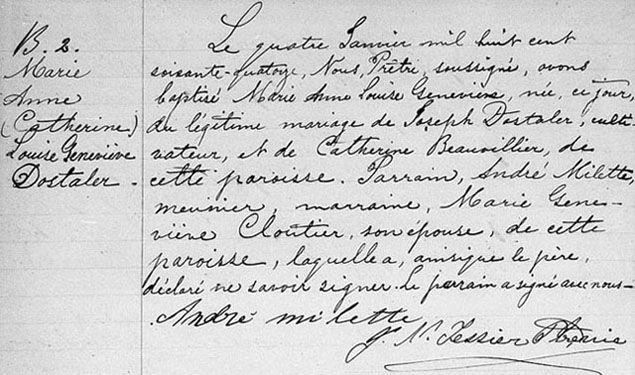 B. 2.
Marie
Anne
(Catherine)
Louise Geneviève
Dostaler.
Le quatre Janvier mil huit cent
soixante-quatorze, Nous, Prêtre, soussigné, avons
baptisé Marie Anne Louise Geneviève, née, ce jour,
du légitime mariage de Joseph Dostaler, culti-
vateur, et de Catherine Beauvillier, de
cette paroisse. Parrain, André Milette,
meunier, marraine, Marie Gene-
viève Cloutier, son épouse, de cette
paroisse, laquelle a, ainsi que le père,
déclaré ne savoir signer. le parrain a signé avec nous-
André milette
J. N. Tessier Ptre